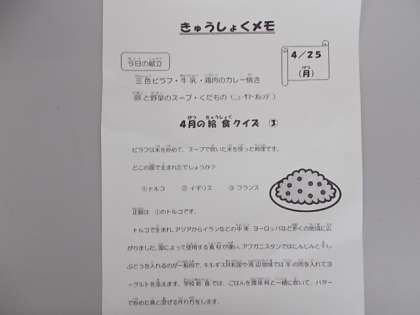 きゅうしょくメモ
4／25
（月）
今日の献立
三色ピラフ・牛乳・鶏肉のカレー焼き
卵と野菜のスープ・くだもの
4月の給食クイズ ③
ピラフは米を炒めて、スープで炊いた米を使った料理です。
どこの国で生まれたでしょうか？
①トルコ ②イギリス ③フランス
正解は ①のトルコです。
トルコで生まれ、アジアからイランなどの中東、ヨーロッパなど多くの地域に広
がりました。国によって使用する食材が違い、アフガニスタンではにんじんと干し
ぶどうを入れるのが一般的で、キルギス共和国や周辺地域では羊の肉を入れてヨ
ーグルトを添えます。学校給食では、ごはんを調味料と一緒に炊いて、バター
で炒めた具と混ぜる作り方をします。